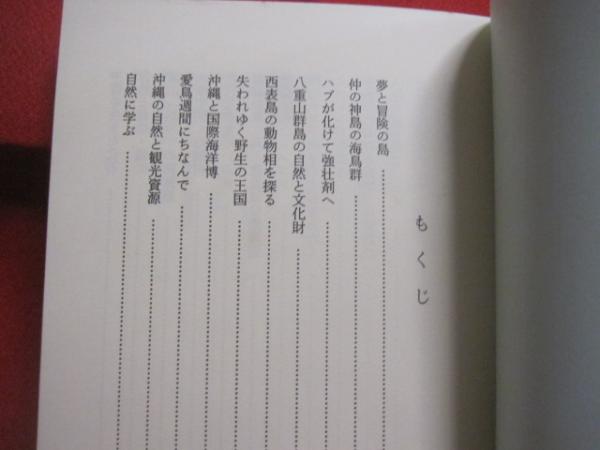 もくじ
夢と冒険の島
仲の神島の海鳥群
ハブが化けて強壮剤へ
八重山群島の自然と文化財
西表島の動物相を探る
失われゆく野生の王国
沖縄と国際海洋博
愛鳥週間にちなんで
沖縄の自然と観光資源
自然に学ぶ